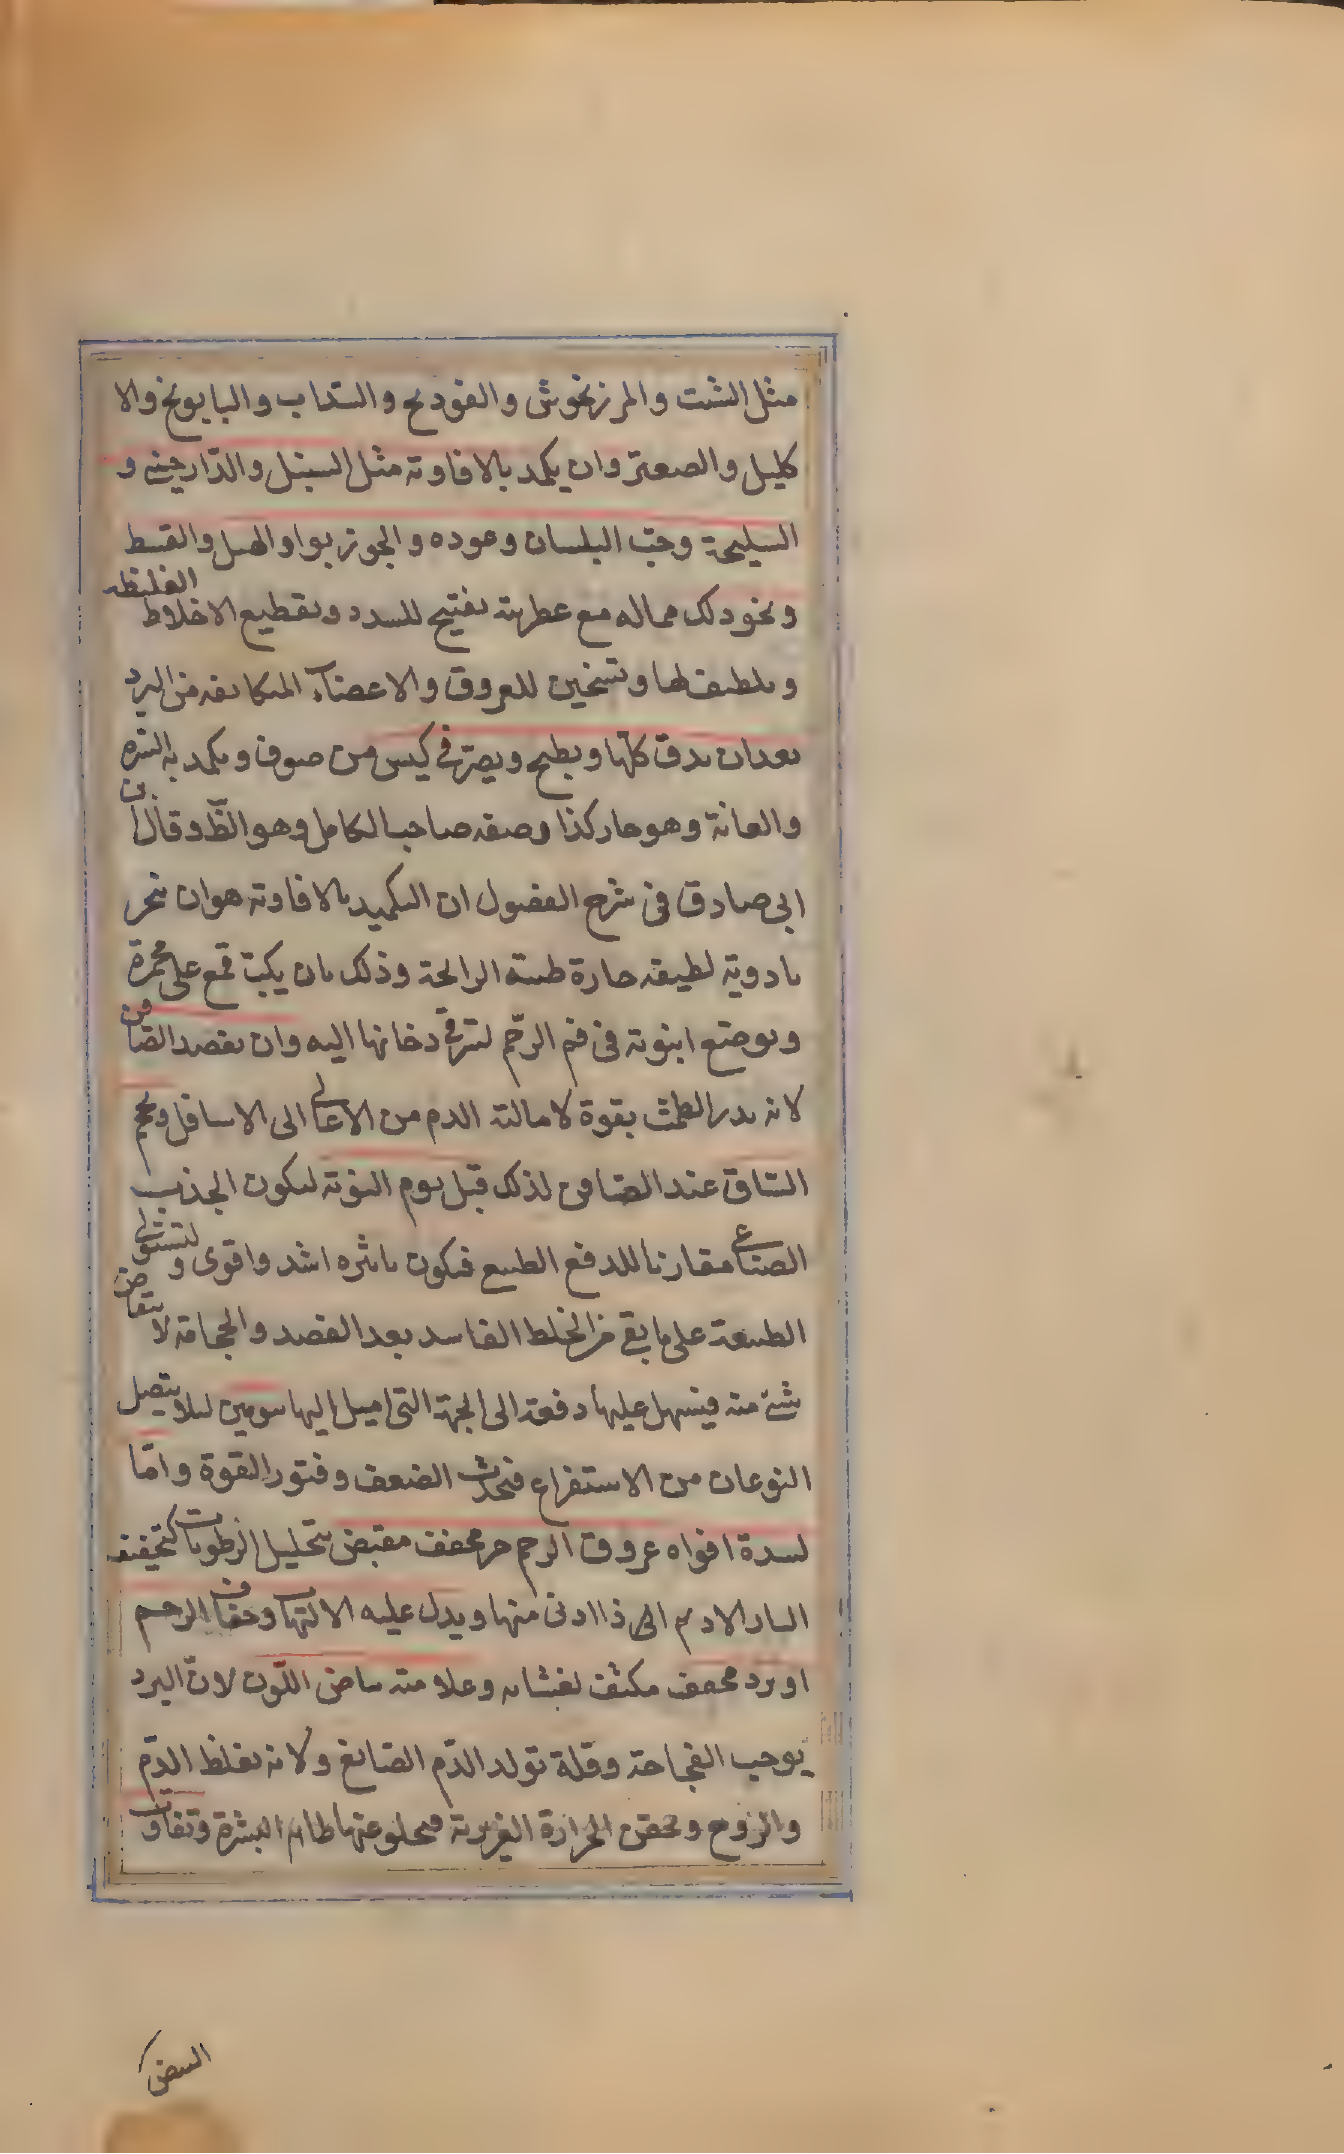 مثل الشبت والمرزنجوش والفودنج والسداب والبابونج والا
كليل والصعتر وان يكمد بالافاويه مثل السنبل والدارجينى و
السليخة وحب البلسان وعوده والجوزبوا والهيل والقسط
ونحو ذلك مما له مع عطريته تفتيح للسدد وتقطيع الاخلاط الغليظه
وتلطيف لها وتسخين للعروق والاعضاء المتكاثفه من البرد
بعد ان يدق كلها ويطبخ ويصر فى كيس من صوف ويكمد به السره
والعانة وهو حار كذا وصفه صاحب الكامل وهو الظ وقال ابن
ابى صادق فى شرح الفصول ان التكميد بالافاويه هو ان يبخر
بادوية لطيفه حارة طيبه الرايحة وذلك بان يكب قمع على مجمرة
ويوضع انبوبه فى فم الرحم لترقى دخانها اليه وان يفصد الصافن
لانه يدر الطمث بقوة لامالته الدم من الاعالى الى الاسافل ويحجم
الساق عند الصافن لذلك قبل يوم النوبه ليكون الجذب
الصناعى مقارنا للدفع الطبيعى فيكون تاثيره اشد واقوى ولتستولى
الطبيعة على ما بقى من الخلط الفاسد بعد الفصد والحجامة لانتقاص
شئ منه فيسهل عليها دفعه الى الجهة التى اميل اليها بيومين لئلا يتصل
النوعان من الاستفراغ فيحدث الضعف وفتور القوة واما
لسدة افواه عروق الرحم حر مجفف مقبض بتحليل الرطوبات كتجفيف
النار الادم الى ذا ادنى منها ويدل عليه الالتهاب وجفاف الرحم
او برد مجفف مكثف لغشائه وعلامته بياض اللون لان البرد
يوجب الفجاجة وقلة تولد الدم الصابغ ولانه يغلظ الدم
والروح ويحقن الحرارة الغريزية فيخلو عنها ظاهر البشرة وتفاوت
النبض